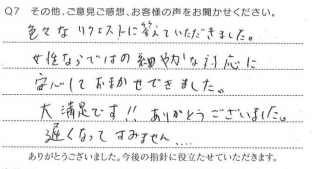 Q7 その他、ご意見ご感想、お客様の声をお聞かせください。
色々なリクエストに答えていただきました。
女性ならではの細やかな対応に
安心しておまかせできました。
大満足です!! ありがとうございました。
遅くなってすみません....
ありがとうございました。今後の指針に役立たせていただきます。